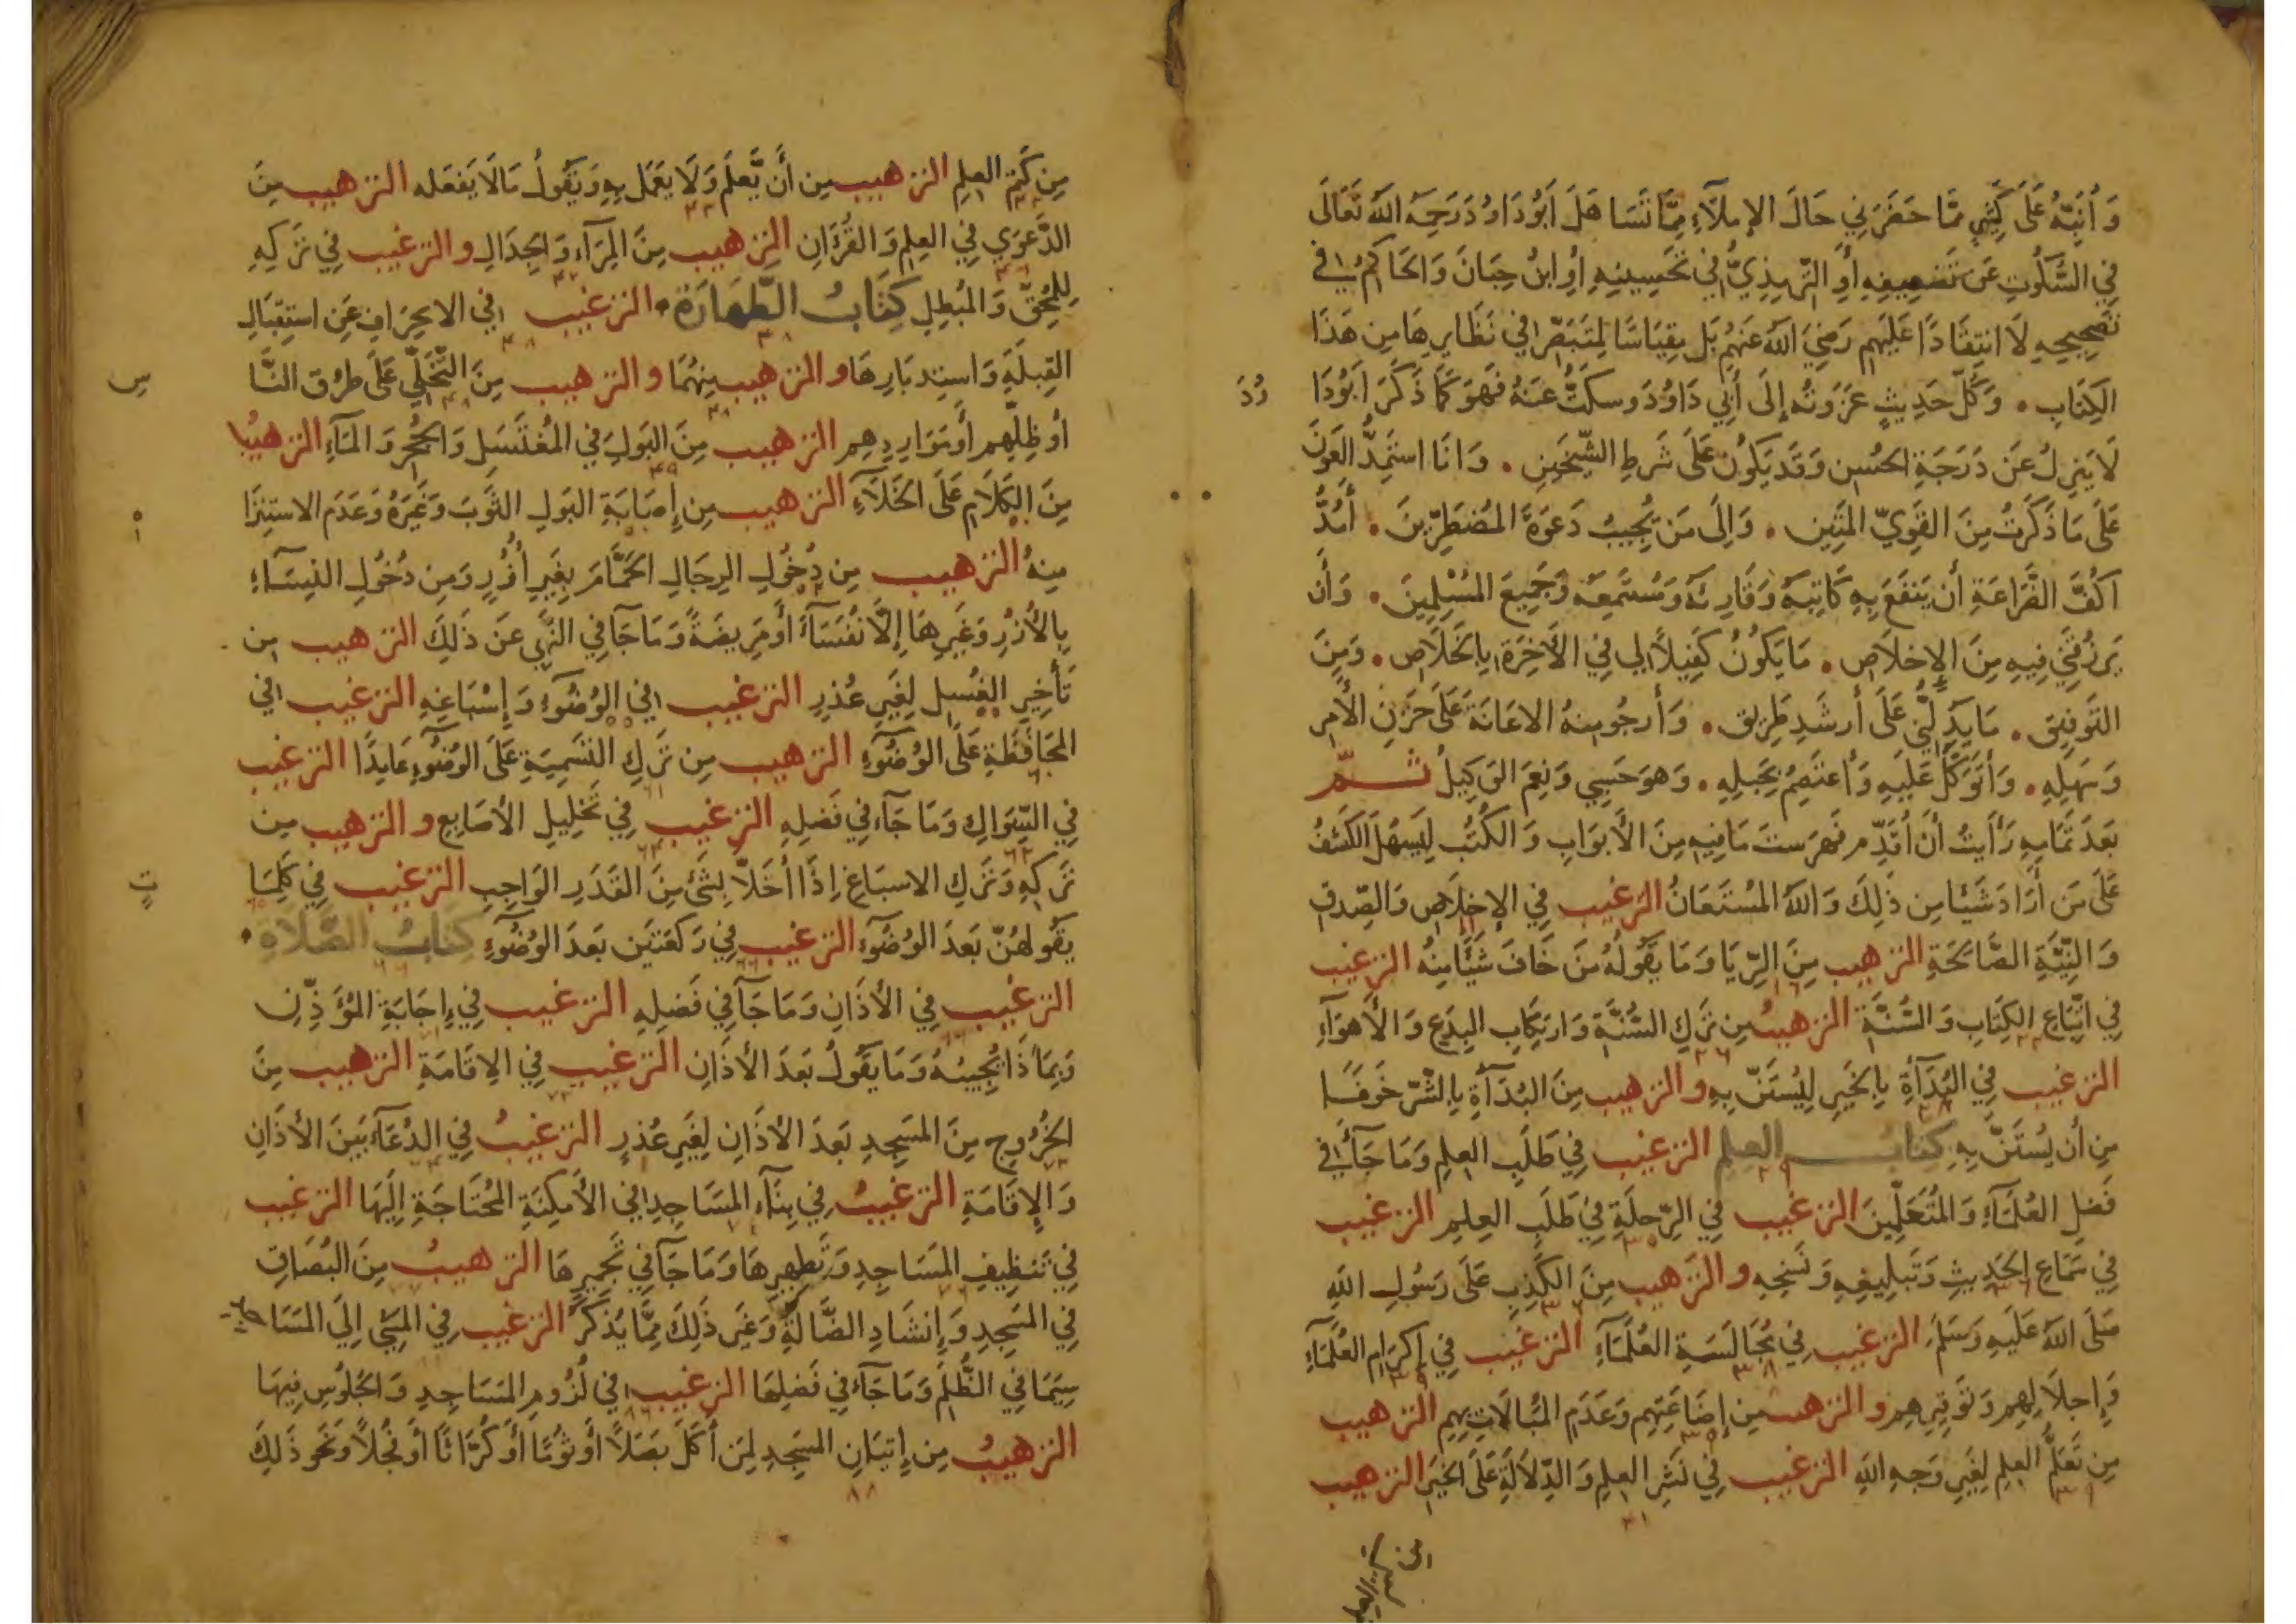 وَأُنَبِّهُ عَلَى كَثِيرٍ مِمَّا حَضَرَنِي حَالَ الإِملَآءِ مِمَّا تَسَاهَلَ اَبُودَاوُدَ رَحِمَهُ اللَّهُ تَعَالَى
فِي السُّكُوتِ عَن تَضعِيفِهِ أَوِ التِّرمِذِيُّ فِي تَحسِينِهِ أَوِ ابنُ حِبَانَ وَالحَاكِمُ فِي
تَصحِيحِهِ لَا انتِقَادًا عَلَيهِم رَضِيَ اللَّهُ عَنهُم بَل مِقيَاسًا لِمُتَبَصِّرٍ فِي نَظَايِرِهَا مِن هَذَا
الكِتَابِ . وَكُلُّ حَدِيثٍ عَزَوتُه إِلَى أَبِي دَاوُدَ وسكَتُّ عَنهُ فَهُوَ كَمَا ذَكَرَ اَبُودَا وُدَ
لَا يَنزِلُ عَن دَرَجَةِ الحُسنِ وَقَد يَكُونُ عَلَى شَرطِ الشَّيخَينِ . وَانَا استَمِدُّ العَونَ
عَلَى مَا ذَكَرتُ مِنَ القَوِيِّ المَتِين . وَإِلَى مَن يُجِيبُ دَعوَةَ المُضطَرِّينَ . أَمُدُّ
اكُفَّ الضَّرَاعَةِ أَن يَنفَعَ بِهِ كَاتِبَهُ وَقَارِئَهُ وَمُستَمِعَهُ وَجَمِيعَ المُسْلِمِينَ . وَأَن
يَرزُقَنِي فِيهِ مِنَ الإِخلَاصِ . مَا يَكُونُ كَفِيلاً لِي فِي الأَخِرَةِ بِالخَلَاصِ . وَمِنَ
التَوفِيقِ . مَا يَدُلُّنِي عَلَى أَرشَدِ طَرِيقٍ . وَأَرجُو مِنهُ الاعَانَةَ عَلَى حَزنِ الأَمرِ
وَسَهلِهِ . وَأَتَوَكَّلُ عَلَيهِ وَأَعتَصِمُ بِحَبلِهِ . وَهوَ حَسبِي وَنِعمَ الوَكِيلُ ثُمَّ
بَعدَ تَمَامِهِ رَأَيتُ أَن أُقَدِّمَ فَهرَستَ مَا فِيهِ مِنَ الأَبوَابِ وَالكُتُبِ لِيَسهُلَ الكَشفُ
عَلَى مَن أَرَادَ شَيئًا مِن ذَلِكَ وَاللَّهُ المُستَعَانُ الترغيب فِي الإِخلَاصِ وَالصِّدقِ
وَالنِّيَّةِ الصَّالِحَةِ الترهيب مِنَ الرِّيَا وَمَا يَقُولُهُ مَن خَافَ شَيئًا مِنهُ الترغيب
فِي اتِّبَاعِ الكِتَابِ وَالسُّنَّةِ الترهيبُ مِن تَركِ السُّنَّةِ وَارتِكَابِ البِدَعِ وَالأَهوَآءِ
الترغيب فِي البُدَآةِ بِالخَيرِ لِيُستَنَّ بِهِ والترهيب مِنَ البُدَآةِ بِالشَّرِّ خَوفًا
مِن أَن يُستَنَّ بِهِ كتابُ العِلمِ الترغيب فِي طَلَبِ العِلمِ وَمَا جَآءَ فِي
فَضلِ العُلَمَآءِ وَالمُتَعَلِّمِينَ الترغيب فِي الرِّحلَةِ فِي طَلَبِ العِلمِ الترغيب
فِي سَمَاعِ الحَدِيثِ وَتَبلِيغِهِ وَنَسخِهِ والترهيب مِنَ الكَذِبِ عَلَى رَسُولِ اللَّهِ
صَلَى اللَّهُ عَلَيهِ وَسَلَمَ الترغيب فِي مُجَالَسَةِ العُلَمَآءِ الترغيب فِي إِكرَامِ العُلَمَآءِ
وَإِجلاَلِهِم وَتَوقِيرِهِم والترهيب مِن إِضَاعَتِهِم وَعَدَمِ المُبَالَاتِ بِهِم الترهيب
مِن تَعَلُّمِ العِلمِ لِغَيرِ وَجهِ اللَّهِ الترغيب فِي نَشرِ العِلمِ وَالدِّلَالَةِ عَلَى الخَيرِ الترهيب
مِن كَتمِ العِلمِ الترهيب مِن أَن يَّعلَمَ وَلَا يَعمَل بِهِ وَيَقُولُ مَالَا يَفعَله الترهيب مِنَ
الدَّعوَي فِي العِلمِ وَالقُرَانِ الترهيب مِنَ المِرَآءِ وَالجِدَالِ والترغيب فِي تَركِهِ
لِلمُحِقِّ وَالمُبطِلِ كِتَابُ الطَّهَارَة . الترغيب فِي الانحِرَافِ عَنِ استِقبَالِ
القِبلَةِ وَاستِدبَارِهَا والترهيب مِنهُمَا والترهيب مِنَ التَّخَلِّي عَلَى طرُقِ النَّا س
أَو ظِلِّهِم أَو مَوَارِدِهِم الترهيب مِنَ البَولِ فِي المُغتَسَلِ وَالجُحرِ وَالمَآءِ الترهيبُ
مِنَ الكَلَامِ عَلَى الخَلَآءِ الترهيب مِن إِصَابَةِ البَولِ الثَّوبَ وَغَيرَهُ وَعَدَمِ الاستِبرَا ءِ
مِنهُ الترهيب مِن دُخُولِ الرِجَالِ الحَمَّامَ بِغَيرِ أُزُرٍ وَمِن دُخُولِ النِسَاءِ
بِالأُزرِ وَغَيرِهَا إِلَّا نُفَسَآءَ أَو مَرِيضَةً وَمَا جَآ فِي النَّهيِ عَن ذَلِكَ الترهيب مِن
تَأخِيرِ الغُسلِ لِغَيرِ عُذرٍ الترغيب فِي الوُضُوءِ وَإِسْبَاغِهِ الترغيب فِي
المحَافَظَةِ عَلَى الوُضُوءِ الترهيب مِن تَركِ التَسَمِيَةِ عَلَى الوُضُوءِ عَامِدًا الترغيب
فِي السِّوَاكِ وَمَا جَآءَ فِي فَضلِهِ الترغيب فِي تَخلِيلِ الأَصَابِعِ والترهيب مِن
تَركِهِ وَتَركِ الاسبَاغِ إِذَا أَخَلاَّ بِشَئٍ مِنَ القَدَرِ الوَاجِبِ الترغيب فِي كَلِمَا تٍ
يَقُولُهُنَّ بَعدَ الوُضُوءِ الترغيب فِي رَكعَتَينِ بَعدَ الوُضُوءِ كتَابُ الصَّلَاةِ .
الترغيب فِي الأَذَانِ وَمَا جَآ فِي فَضلِهِ الترغيب فِي إِجَابَةِ المُؤَذِّنِ
وَبِمَاذَا يُجِيبُهُ وَمَا يَقُولُ بَعدَ الأَذَانِ الترغيب فِي الإِقَامَةِ الترهيب مِنَ
الخُرُوجِ مِنَ المَسجِدِ بَعدَ الأَذَانِ لِغَيرِ عُذرٍ الترغيبُ فِي الدُعَآءِ بَينَ الأَذَانِ
وَالإِقَامَةِ الترغيبُ فِي بِنَآءِ المَسَاجِدِ فِي الأَمكِنَةِ المُحتَاجَةِ إِلَيهَا الترغيب
فِي تَنظِيفِ المَسَاجِدِ وَتَطهِيرِهَا وَمَا جَآ فِي تَجمِيرِهَا الترهيبُ مِنَ البُصَاقِ
فِي المَسجِدِ وَإِنشَادِ الضَّالَّةِ وَغَيرِ ذَلِكَ مِمَّا يُذكَرُ الترغيب فِي المَشيِ إِلَي المَسَا جد
سِيَمَا فِي الظُّلَمِ وَمَا جَآءَ فِي فَضلِهَا الترغيب فِي لُزُومِ المَسَاجِدِ وَالجُلُوسِ فِيهَا
الترهيبُ مِن إِتيَانِ المَسجِدِ لِمَن أَكَلَ بَصَلاً أَو ثُومًا أَو كُرَّاثًا أَو فُجلاً وَنَحوَ ذَلِكَ